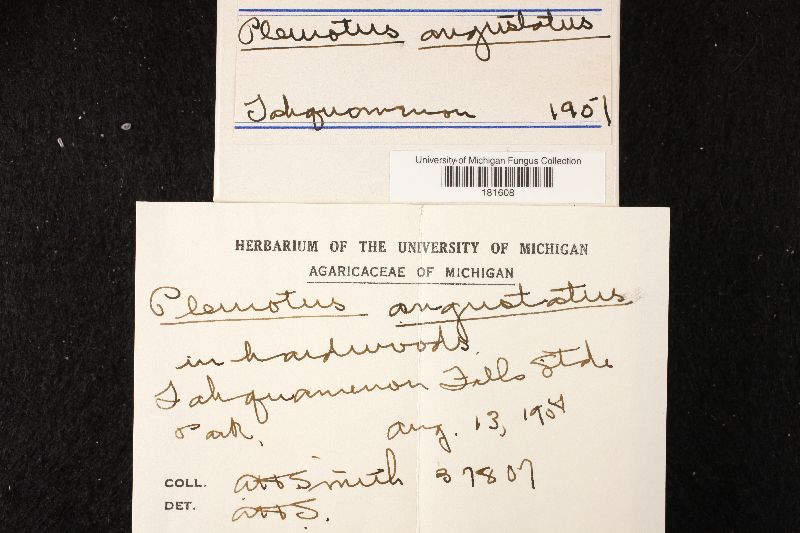 Pleurotus angustatus
Tahquamenon 1951
University of Michigan Fungus Collection
181608
HERBARIUM OF THE UNIVERSITY OF MICHIGAN
AGARICACEAE OF MICHIGAN
Pleurotus angustatus
in hardwoods.
Tahquamenon Falls State
Park. Aug. 13, 1951
COLL. AHSmith 37807
DET. AHS.